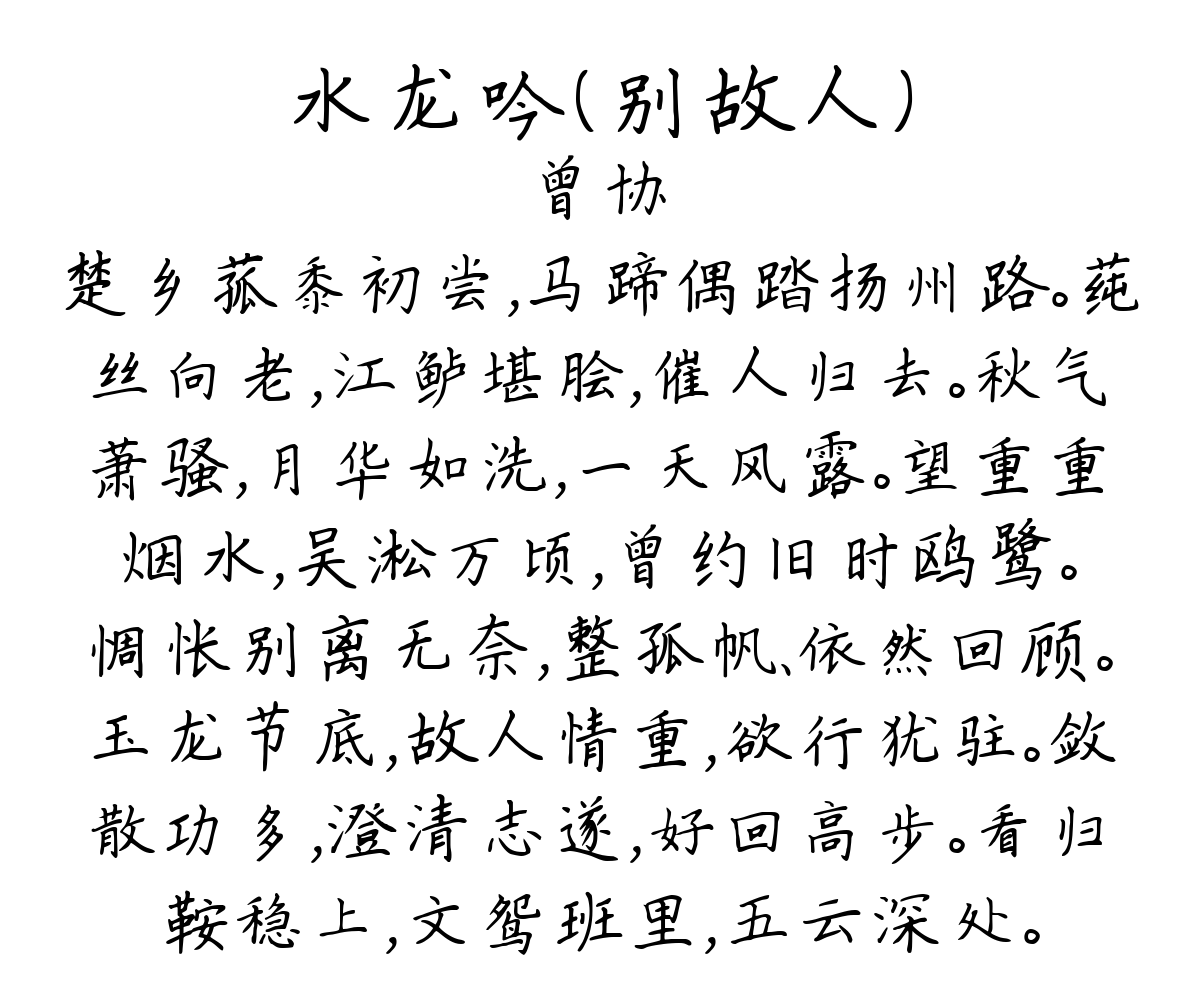 水龙吟(别故人)
曾协
楚乡菰黍初尝,马蹄偶踏扬州路。莼
丝向老,江鲈堪脍,催人归去。秋气
萧骚,月华如洗,一天风露。望重重
烟水,吴淞万顷,曾约旧时鸥鹭。
惆怅别离无奈,整孤帆、依然回顾。
玉龙节底,故人情重,欲行犹驻。敛
散功多,澄清志遂,好回高步。看归
鞍稳上,文鸳班里,五云深处。